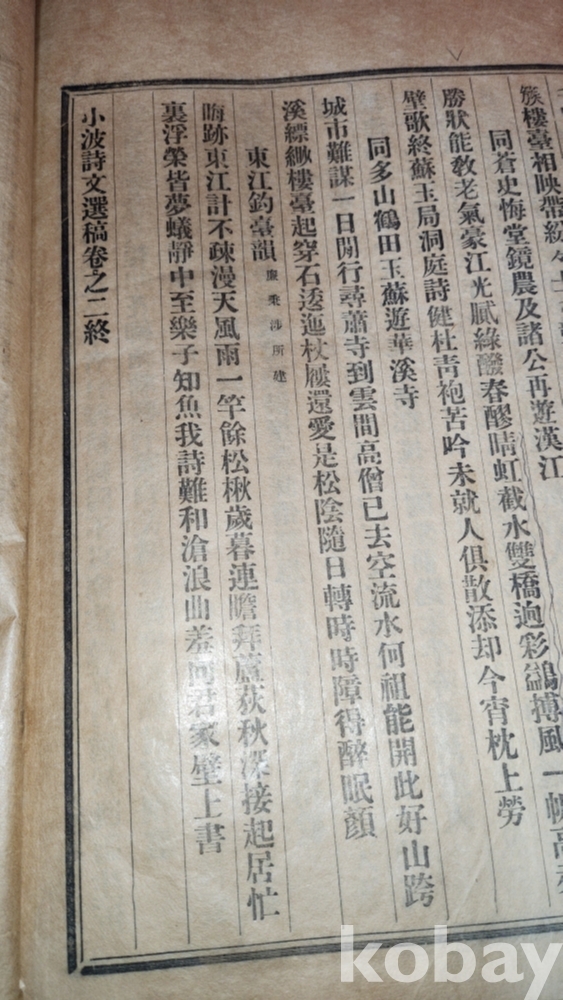 簇樓臺相映帶紛々士
同蒼史悔堂鏡農及諸公再遊漢江
勝狀能教老氣豪江光膩綠醱春醪晴虹截水雙橋逈彩鷁搏風一帆高赤
壁歌終蘇玉局洞庭詩健杜靑袍苦吟未就人俱散添却今宵枕上勞
同多山鶴田玉蘇遊華溪寺
城市難謀一日閒行尋蕭寺到雲間高僧已去空流水何祖能開此好山跨
溪縹緲樓臺起穿石透迤杖屨還愛是松陰隨日轉時時障得醉眠顏
東江釣臺韻 廉秉涉所建
晦跡東江計不疎漫天風雨一竿餘松楸歲暮連瞻拜蘆荻秋深接起居忙
裏浮榮皆夢蟻靜中至樂子知魚我詩難和滄浪曲羞向君家壁上書
小波詩文選稿卷之二終
kobay